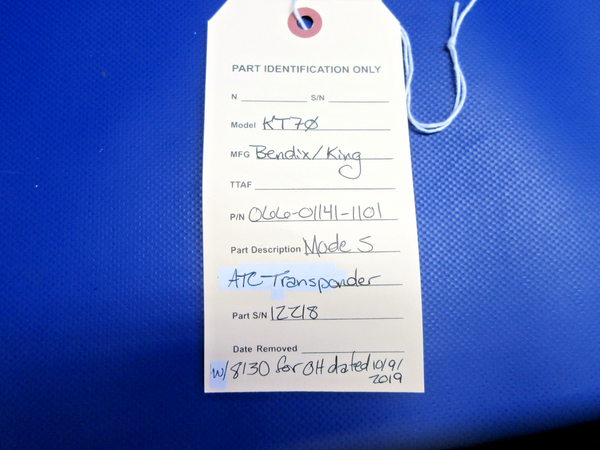 PART IDENTIFICATION ONLY
N S/N
Model KT70
MFG Bendix/King
TTAF
P/N 066-01141-1101
Part Description Mode S
ATC-Transponder
Part S/N 12218
Date Removed
w/8130 for OH dated 10/9/
2019